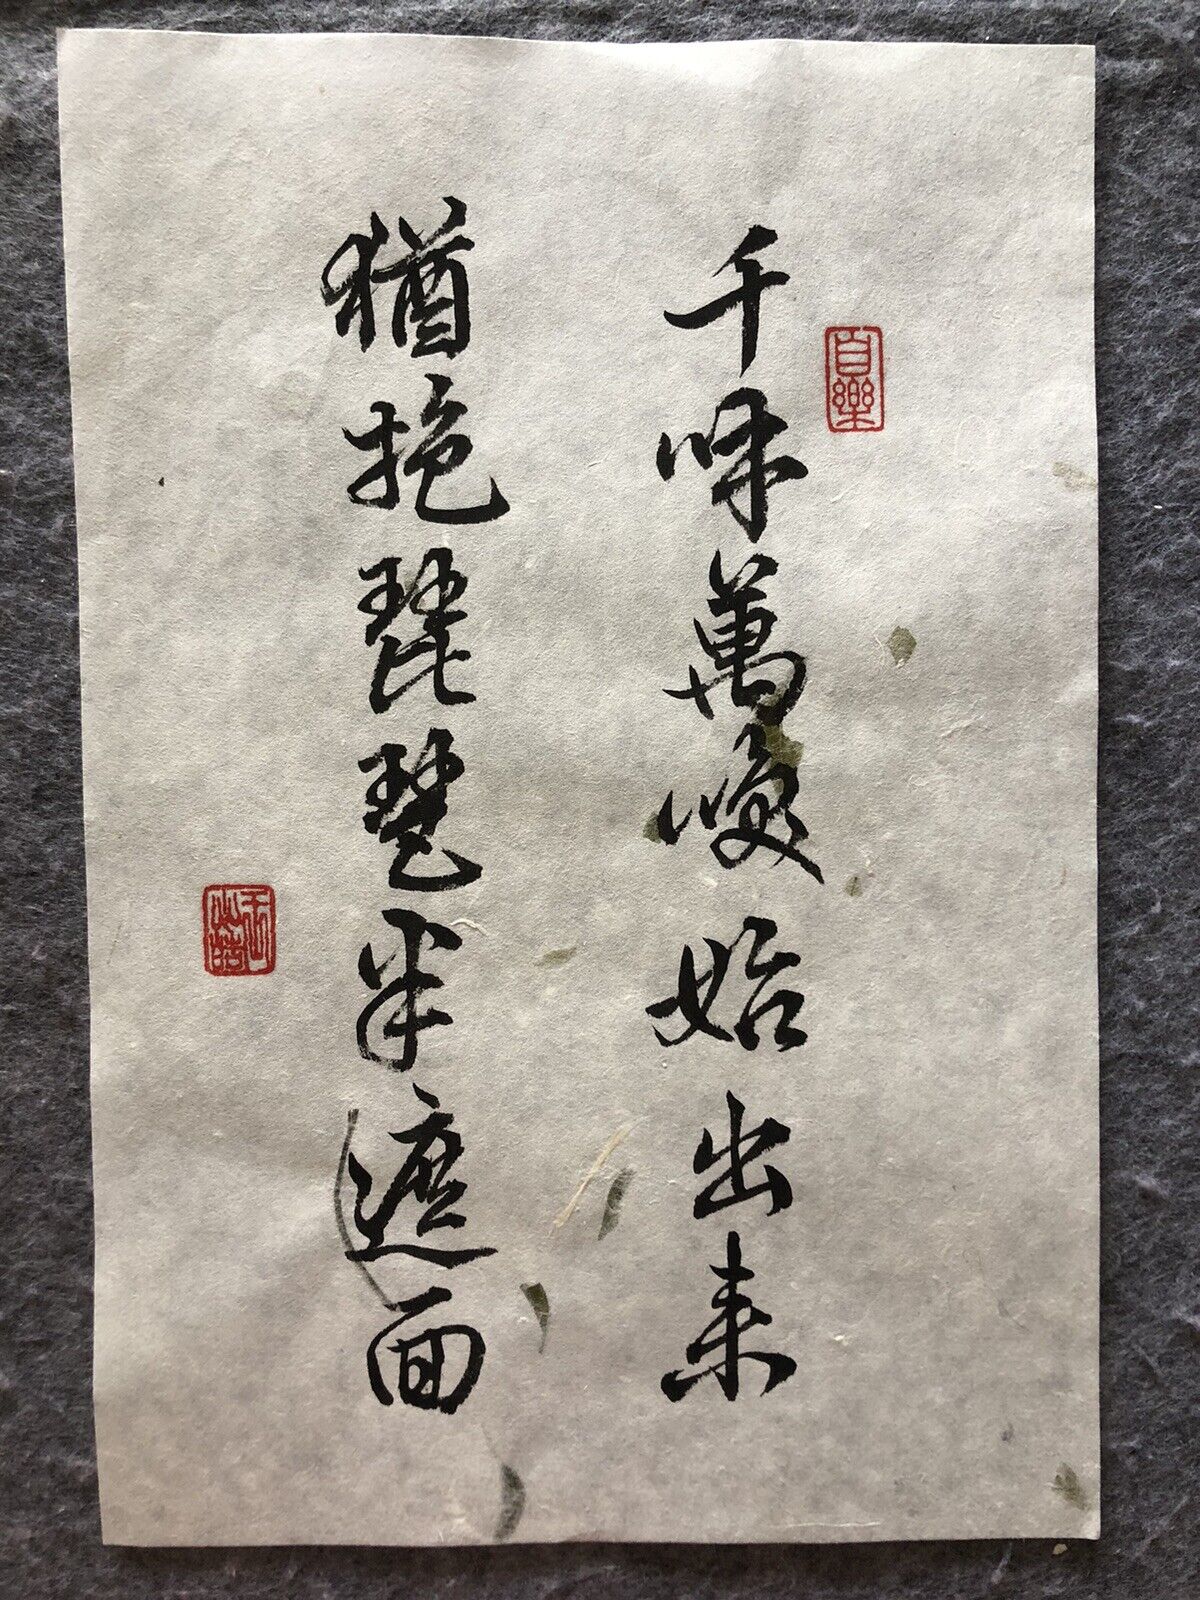 千呼萬喚始出来
猶抱琵琶半遮面